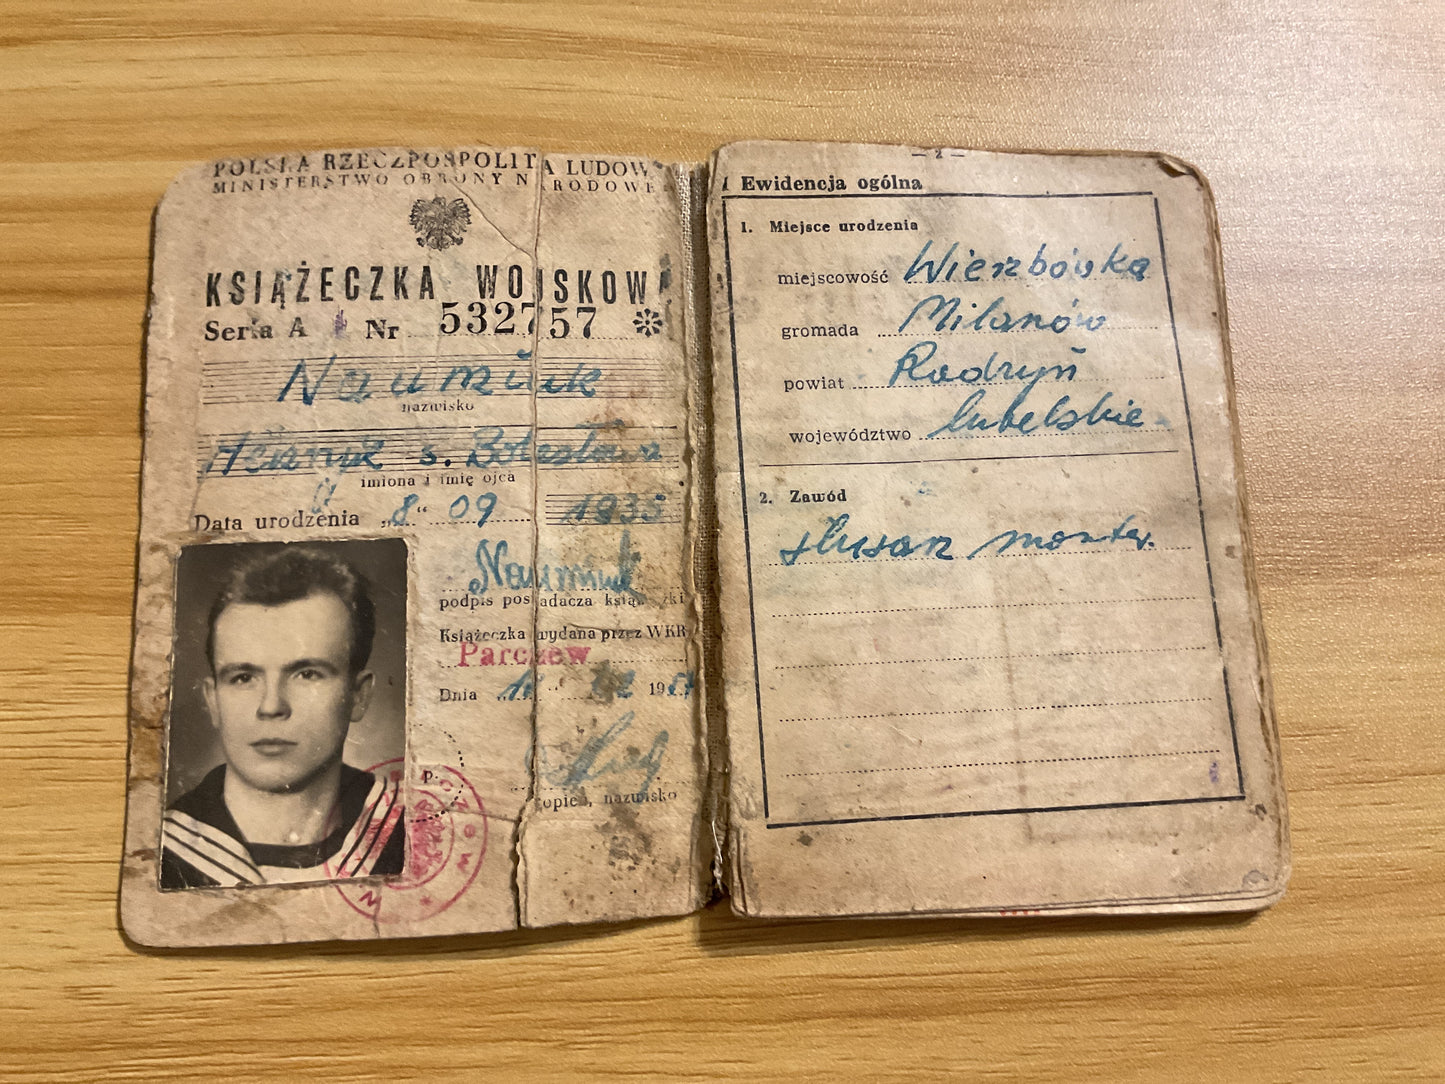 POLSKA RZECZPOSPOLITA LUDOW
MINISTERSTWO OBRONY NARODOWE
KSIĄŻECZKA WOJSKOWA
Seria A Nr 532757
Naumiuk
nazwisko
Henryk s. Bolesława
imiona i imię ojca
Data urodzenia „8“ 09 1935
Naumiuk
podpis posiadacza książeczki
Książeczka wydana przez WKR
Parczew
Dnia 195
stopień, nazwisko
— 2 —
I Ewidencja ogólna
1. Miejsce urodzenia
miejscowość Wierzbówka
gromada Milanów
powiat Radzyń
województwo lubelskie.
2. Zawód
ślusarz monter.